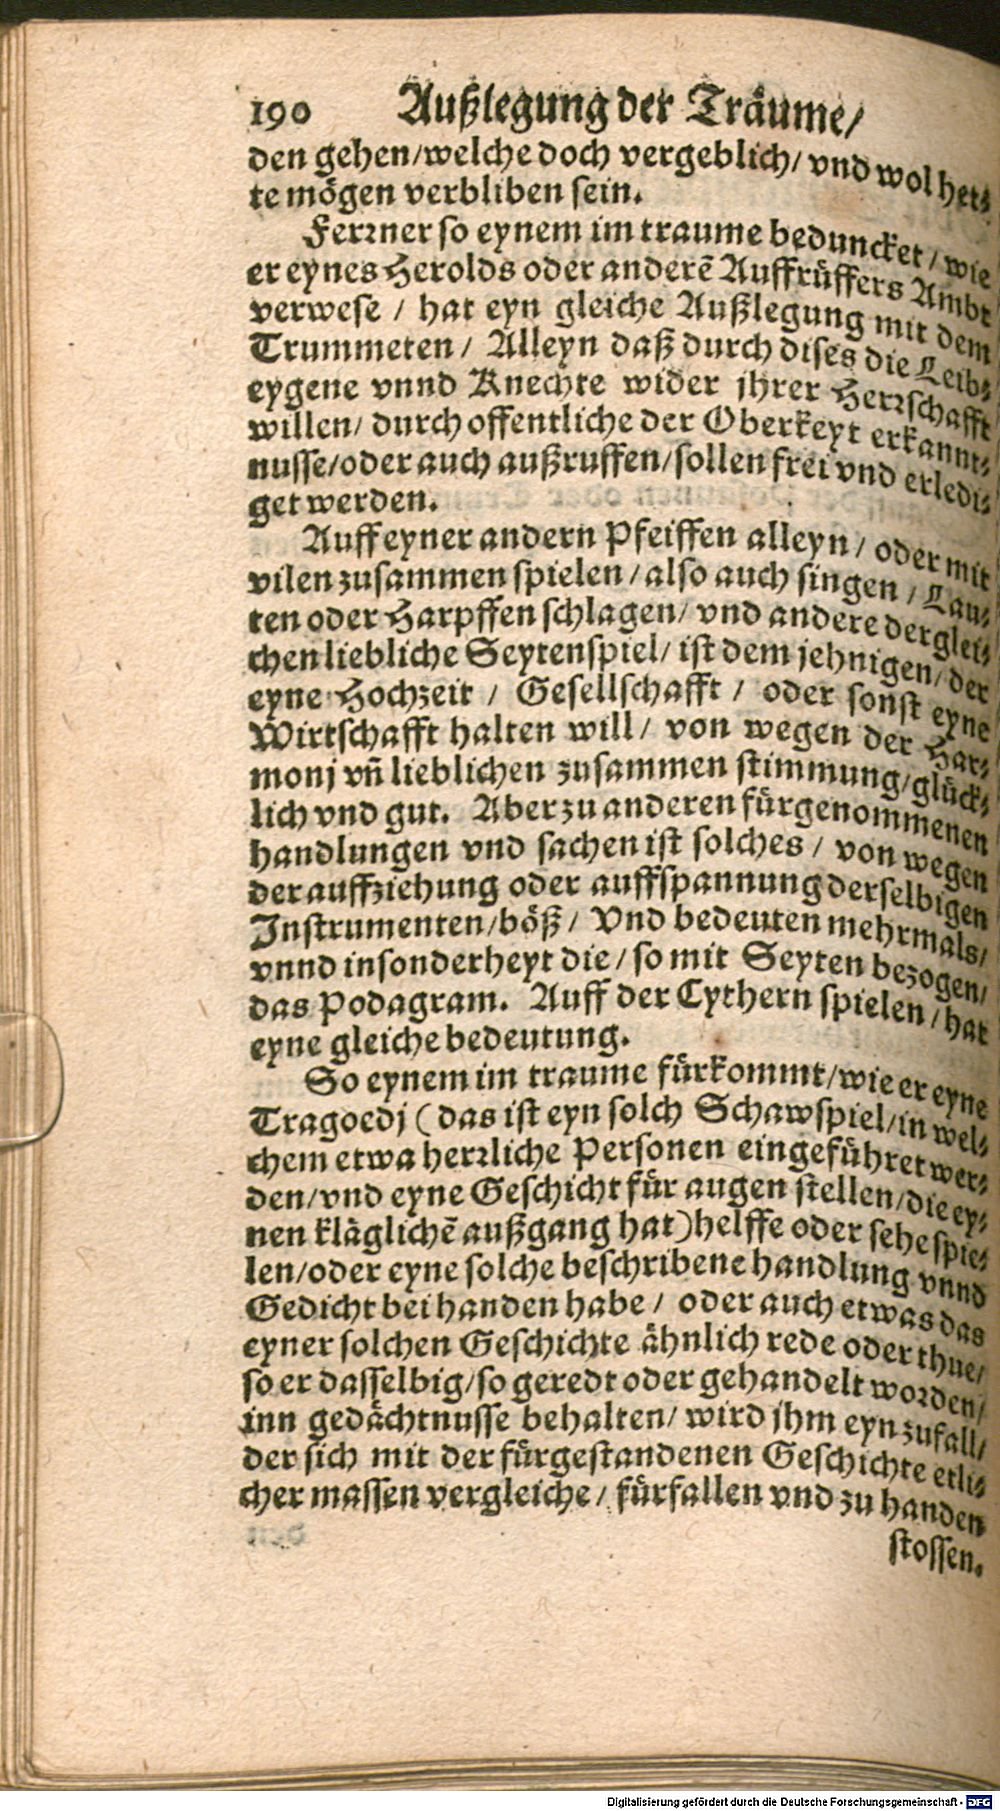 190 Außlegung der Träume/
den gehen/welche doch vergeblich/ vnd wol het⸗
te mögen verbliben sein.
Ferꝛner so eynem im traume beduncket / wie
er eynes Herolds oder anderẽ Auffrüffers Ambt
verwese / hat eyn gleiche Außlegung mit dem
Trummeten / Alleyn daß durch dises die Leib⸗
eygene vnnd Knechte wider jhrer Herꝛschafft
willen/ durch offentliche der Oberkeyt erkannt⸗
nusse/oder auch außruffen/sollen frei vnd erledi⸗
get werden.
Auff eyner andern Pfeiffen alleyn / oder mit
vilen zusammen spielen / also auch singen / Lau⸗
ten oder Harpffen schlagen/ vnd andere derglei⸗
chen liebliche Seytenspiel/ ist dem jehnigen/ der
eyne Hochzeit / Gesellschafft / oder sonst eyne
Wirtschafft halten will / von wegen der Har⸗
monj vñ lieblichen zusammen stimmung/glück⸗
lich vnd gut. Aber zu anderen fürgenommenen
handlungen vnd sachen ist solches / von wegen
der auffziehung oder auffspannung derselbigen
Instrumenten/böß / Vnd bedeuten mehrmals/
vnnd insonderheyt die / so mit Seyten bezogen/
das Podagram. Auff der Cythern spielen / hat
eyne gleiche bedeutung.
So eynem im traume fürkommt/wie er eyne
Tragoedj (das ist eyn solch Schawspiel/in wel⸗
chem etwa herꝛliche Personen eingeführet wer⸗
den/vnd eyne Geschicht für augen stellen/die ey⸗
nen kläglichẽ außgang hat)helffe oder sehe spie⸗
len/oder eyne solche beschribene handlung vnnd
Gedicht bei handen habe / oder auch etwas das
eyner solchen Geschichte ähnlich rede oder thue/
so er dasselbig/so geredt oder gehandelt woꝛden/
inn gedächtnusse behalten/ wird jhm eyn zufall/
der sich mit der fürgestandenen Geschichte etli⸗
cher massen vergleiche / fürfallen vnd zu handen
stossen.
Digitalisierung gefördert durch die Deutsche Forschungsgemeinschaft - DFG